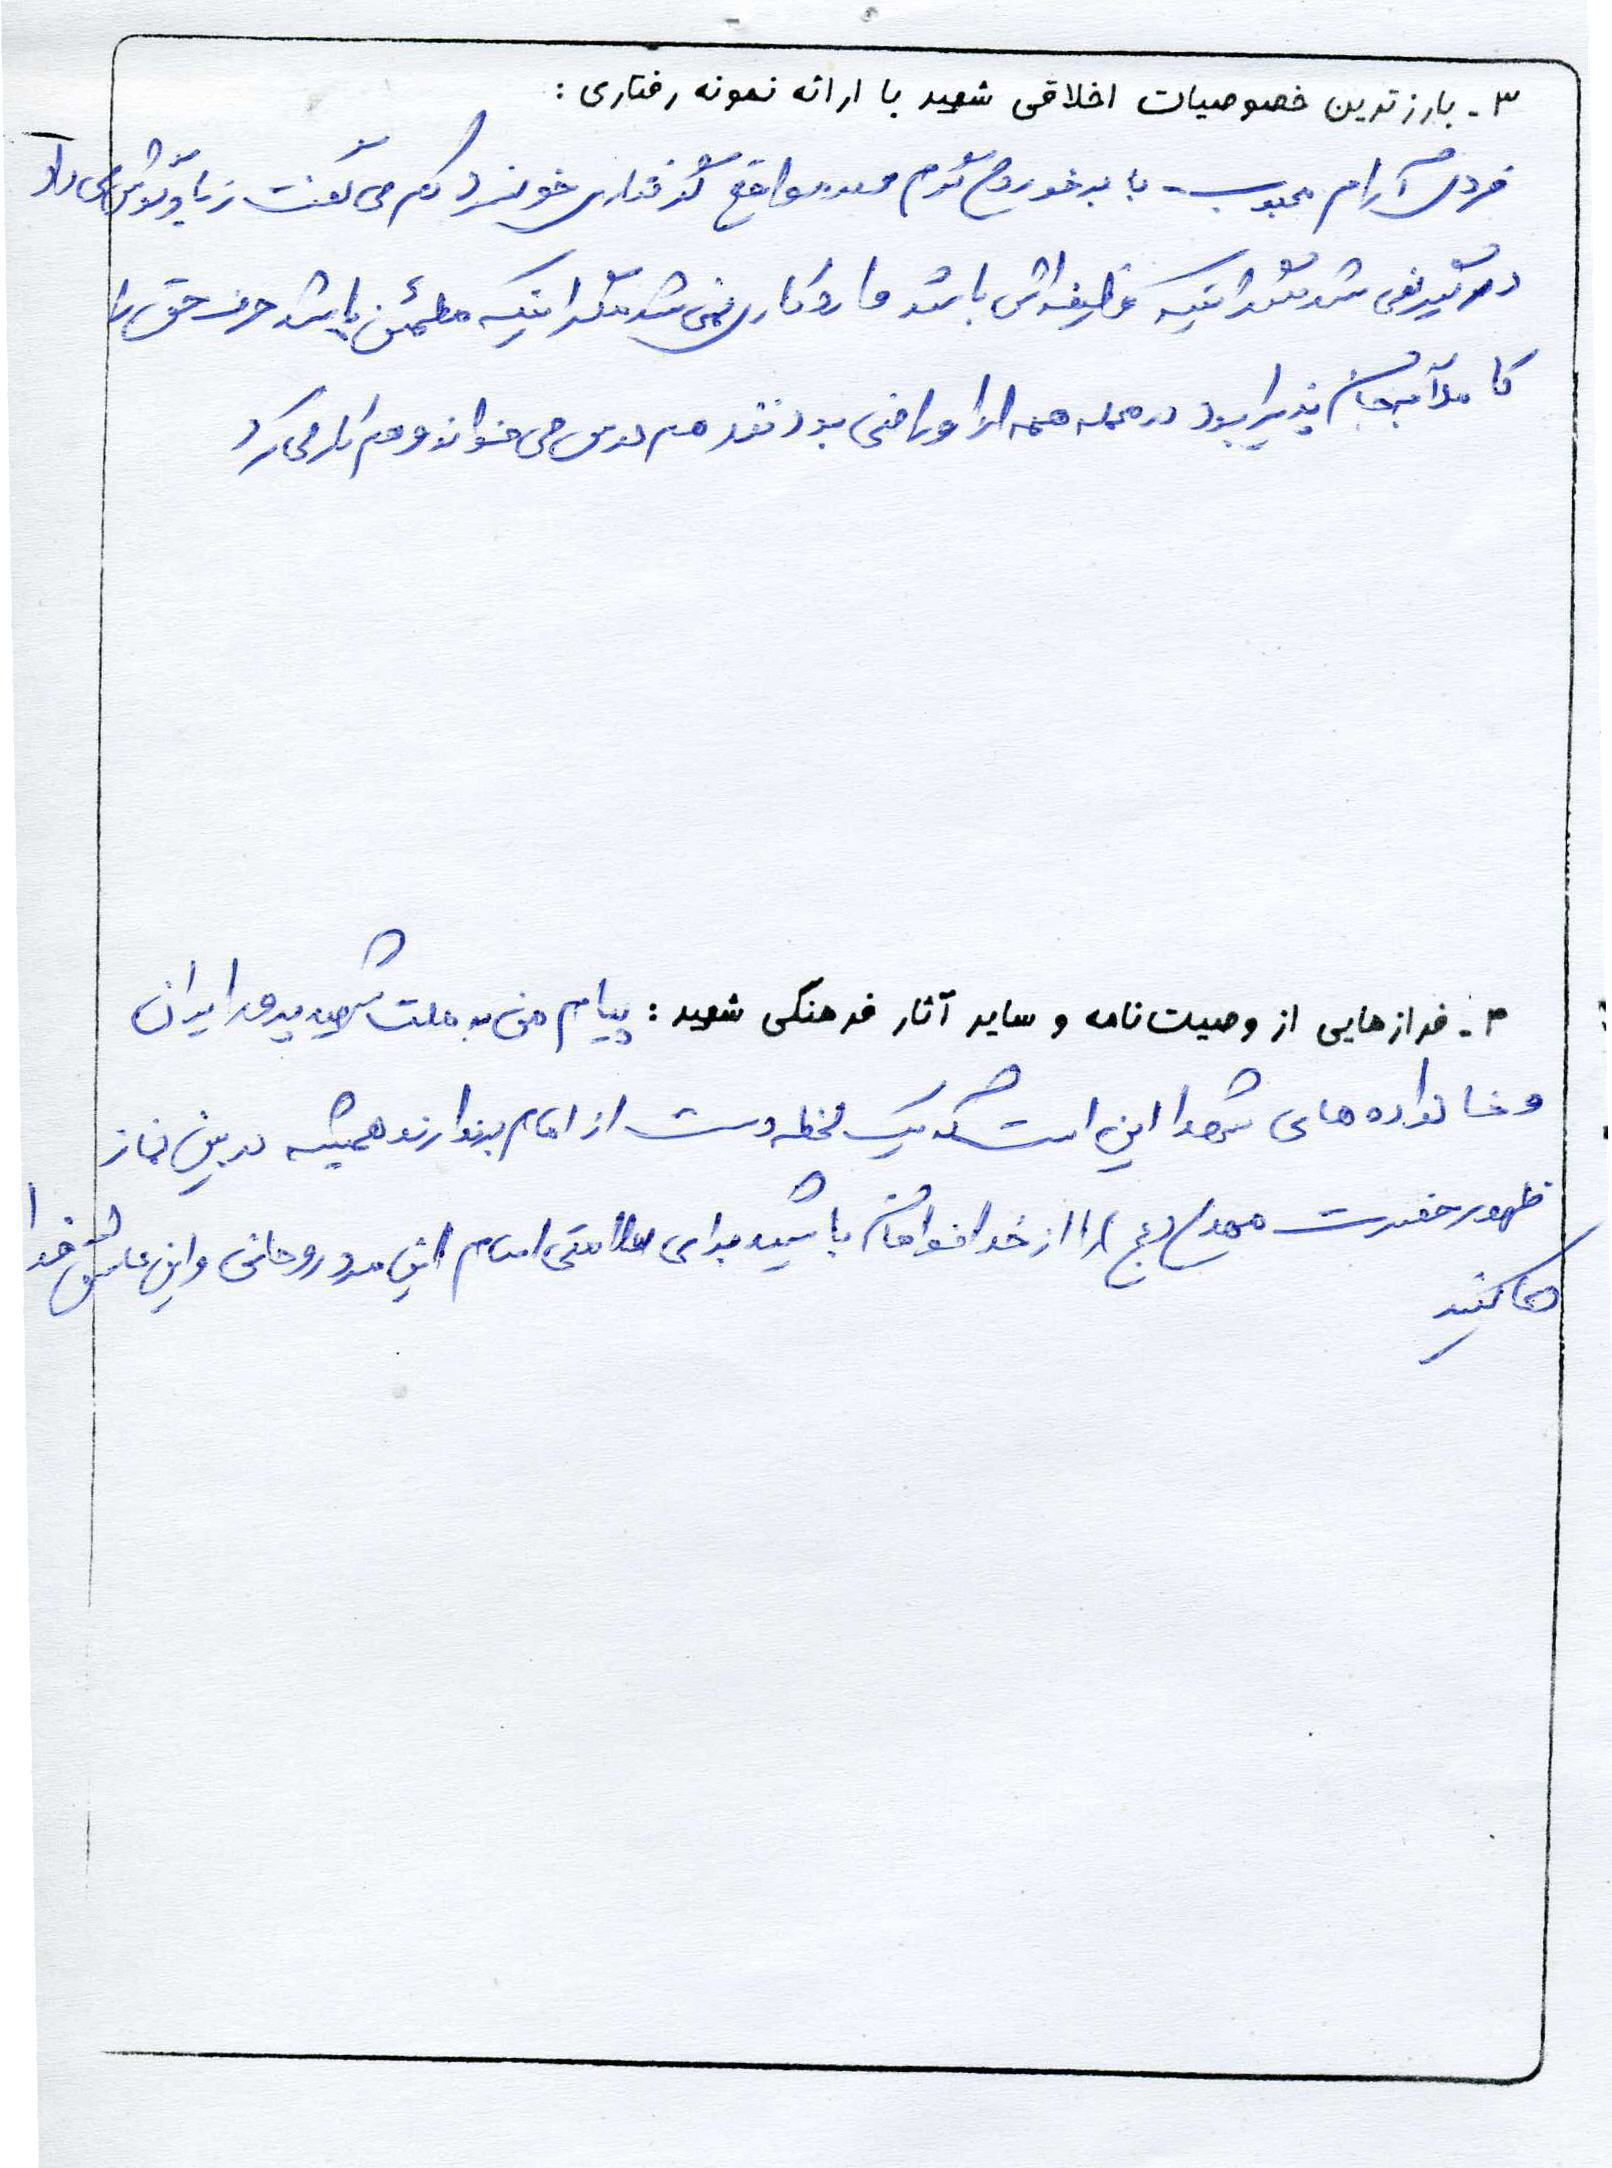 ۳ـ بارزترین خصوصیات اخلاقی شهید با ارائه نمونه رفتاری :
فردی آرام محبوب با برخورد گرم و در مواقع گرفتاری خونسرد کم می گفت زیاد گوش می داد
درگیر نمی شد مگر اینکه وظیفه اش باشد وارد کاری نمی شد مگر اینکه مطمئن باشد حرف حق را
کاملا به جان پذیرا بود در محله همه از او راضی بودند هم درس می خواند و هم کار می کرد
۴ـ فرازهایی از وصیت نامه و سایر آثار فرهنگی شهید : پیام من به ملت شهید پرور ایران
و خانواده های شهدا این است که یک لحظه دست از امام برندارند همیشه در بین نماز
ظهور حضرت مهدی (عج) را از خدا خواهان باشید برای سلامتی امام این مرد روحانی و این عاشق خدا
دعا کنید